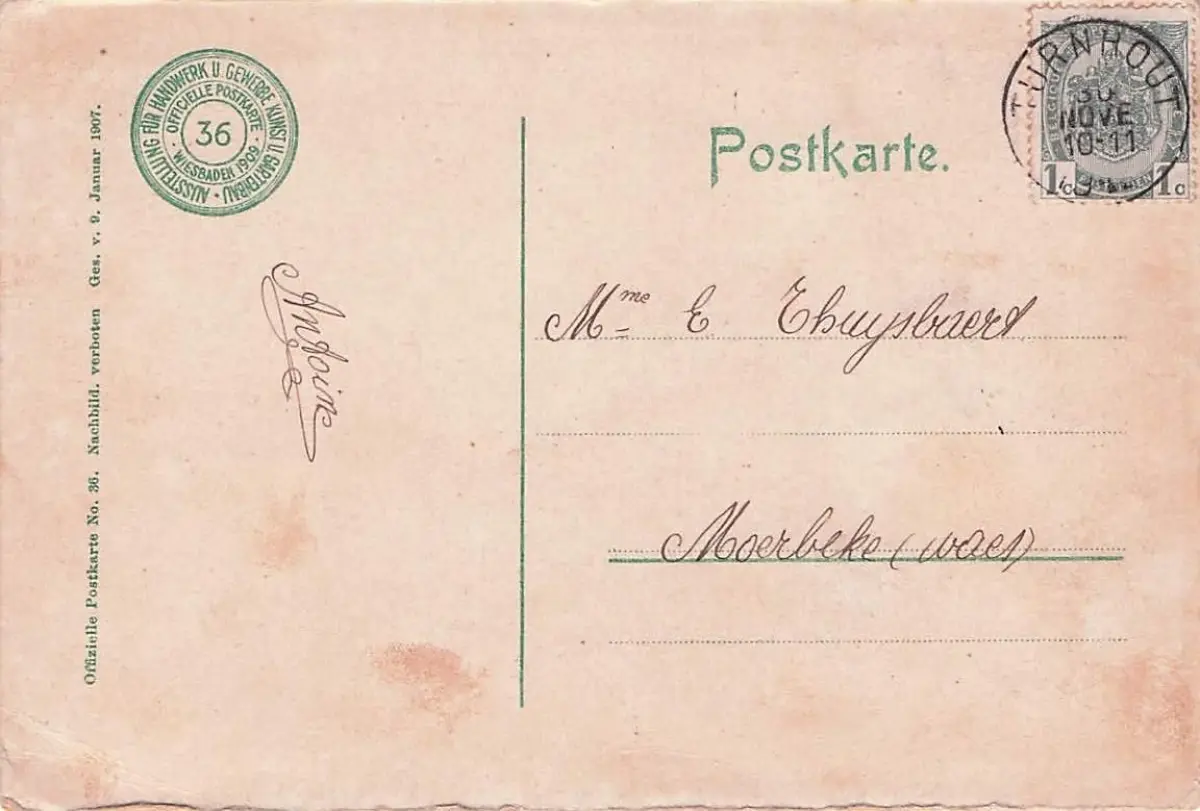 AUSSTELLUNG FÜR HANDWERK U. GEWERBE KUNST U. GARTENBAU
OFFICIELLE POSTKARTE
WIESBADEN 1909
36
Offizielle Postkarte No. 36. Nachbild. verboten Ges. v. 9. Januar 1907.
Antoine
Postkarte.
TURNHOUT
30
NOVE
10-11
1c 1c
Mme E. Thuysbaert
Moerbeke (waes)